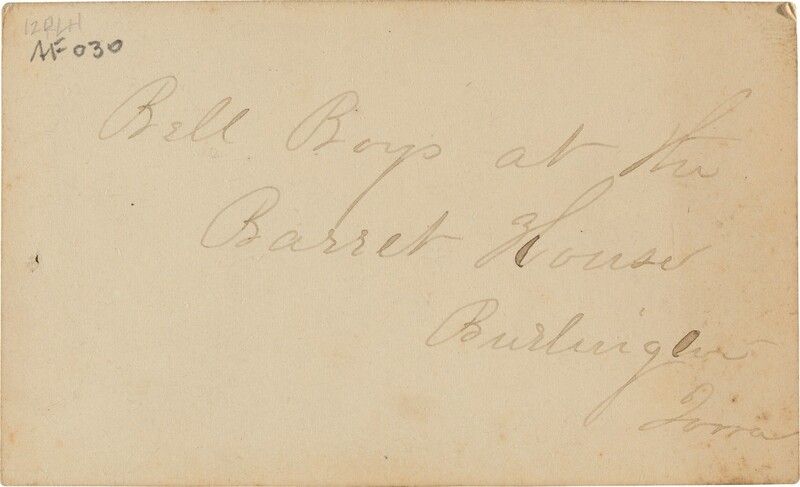 12RLH
AF030
Bell Boys at the
Barret House
Burlingon
Iowa